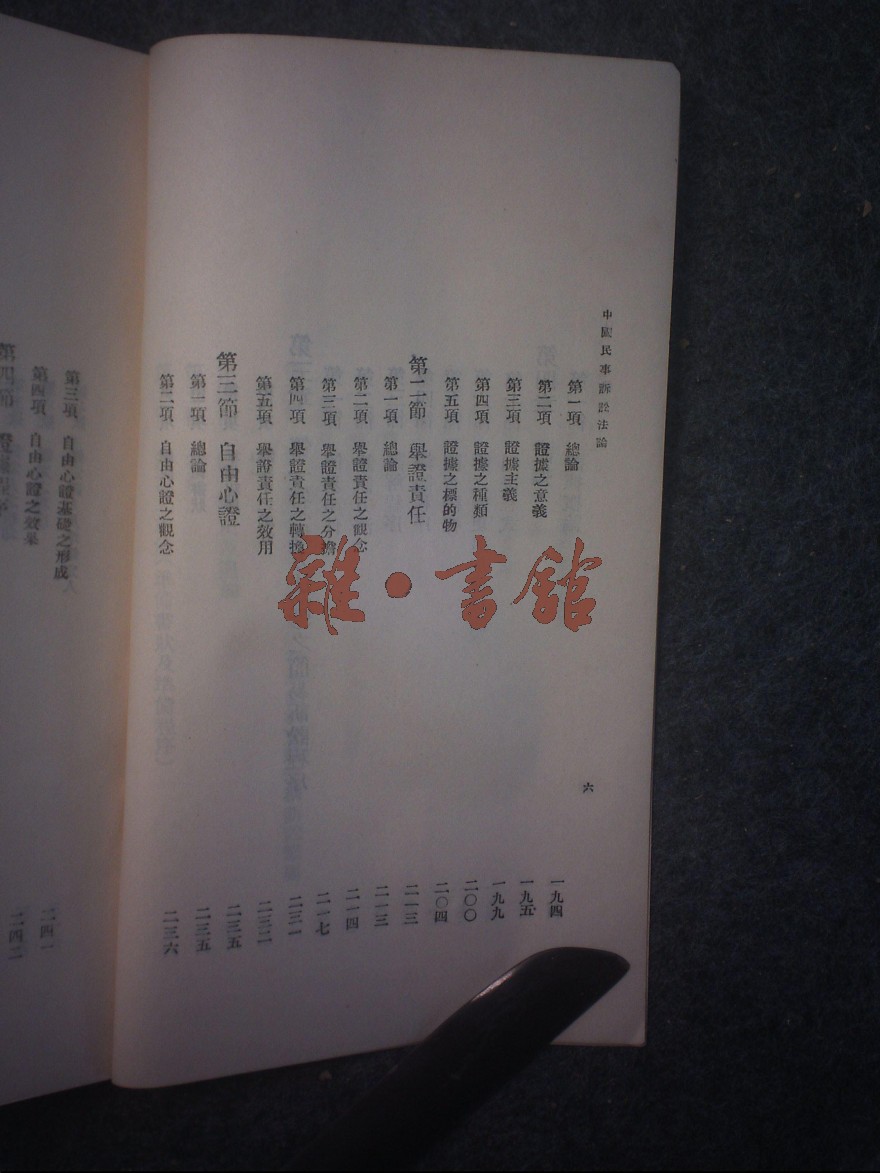 中國民事訴訟法論
六
第一項 總論 一九四
第二項 證據之意義 一九五
第三項 證據主義 一九九
第四項 證據之種類 二〇〇
第五項 證據之標的物 二〇四
第二節 舉證責任 二一三
第一項 總論 二一三
第二項 舉證責任之觀念 二一四
第三項 舉證責任之分擔 二一七
第四項 舉證責任之轉換 二三一
第五項 舉證責任之效用 二三二
第三節 自由心證 二三五
第一項 總論 二三五
第二項 自由心證之觀念 二三六
第三項 自由心證基礎之形成
第四項 自由心證之效果 二四一
第四節 二四二
雜·書館